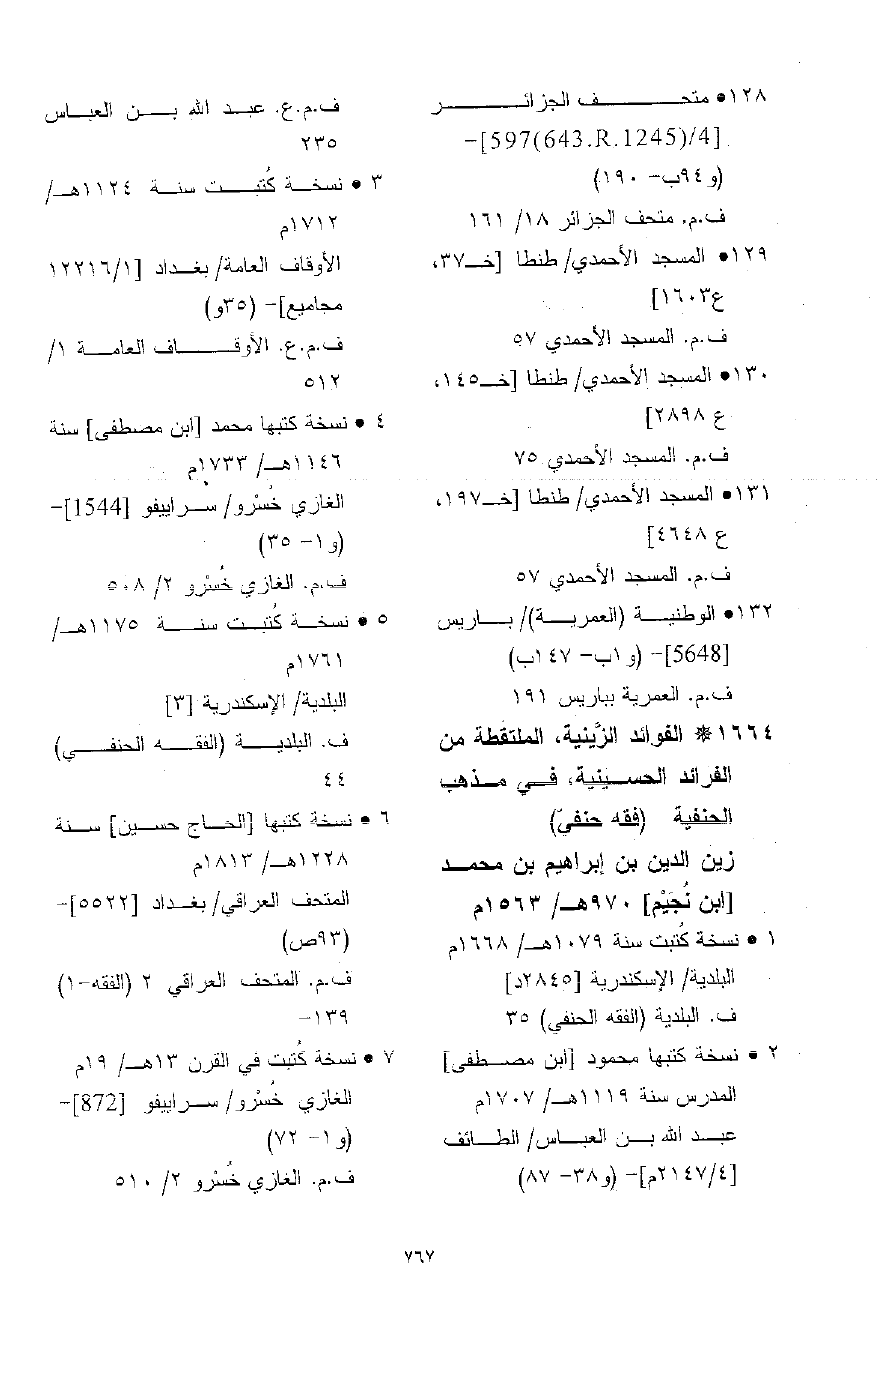 ١٢٨• متحف الجزائر
[597(643.R.1245)/4]-
(و٩٤ب- ١٩٠)
ف.م. متحف الجزائر ١٨/ ١٦١
١٢٩• المسجد الأحمدي/ طنطا [خـ٣٧،
ع١٦٠٣]
ف.م. المسجد الأحمدي ٥٧
١٣٠• المسجد الأحمدي/ طنطا [خـ١٤٥،
ع ٢٨٩٨]
ف.م. المسجد الأحمدي ٧٥
١٣١• المسجد الأحمدي/ طنطا [خـ١٩٧،
ع ٤٦٤٨]
ف.م. المسجد الأحمدي ٥٧
١٣٢• الوطنية (العمرية)/ باريس
[5648]- (و١ب- ١٤٧ب)
ف.م. العمرية بباريس ١٩١
١٦٦٤* الفوائد الزَّينية، الملتقَطة من
الفرائد الحسينية، في مذهب
الحنفية (فقه حنفيّ)
زين الدين بن إبراهيم بن محمد
[ابن نُجَيْم] ٩٧٠هـ/ ١٥٦٣م
١ • نسخة كُتبت سنة ١٠٧٩هـ/ ١٦٦٨م
البلدية/ الإسكندرية [٢٨٤٥د]
ف. البلدية (الفقه الحنفي) ٣٥
٢ • نسخة كتبها محمود [ابن مصطفى]
المدرس سنة ١١١٩هـ/ ١٧٠٧م
عبد الله بن العباس/ الطائف
[٢١٤٧/٤م]- (و٣٨- ٨٧)
ف.م.ع. عبد الله بن العباس
٢٣٥
٣ • نسخة كُتبت سنة ١١٢٤هـ/
١٧١٢م
الأوقاف العامة/ بغداد [١٢٢١٦/١
مجاميع]- (٣٥و)
ف.م.ع. الأوقاف العامة ١/
٥١٢
٤ • نسخة كتبها محمد [ابن مصطفى] سنة
١١٤٦هـ/ ١٧٣٣م
الغازي خُسْرو/ سراييفو [1544]-
(و١- ٣٥)
ف.م. الغازي خُسْرو ٢/ ٥٠٨
٥ • نسخة كُتبت سنة ١١٧٥هـ/
١٧٦١م
البلدية/ الإسكندرية [٣]
ف. البلدية (الفقه الحنفي)
٤٤
٦ • نسخة كتبها [الحاج حسين] سنة
١٢٢٨هـ/ ١٨١٣م
المتحف العراقي/ بغداد [٥٥٢٢]-
(٩٣ص)
ف.م. المتحف العراقي ٢ (الفقه-١)
١٣٩-
٧ • نسخة كُتبت في القرن ١٣هـ/ ١٩م
الغازي خُسْرو/ سراييفو [872]-
(و١- ٧٢)
ف.م. الغازي خُسْرو ٢/ ٥١٠
٧٦٧